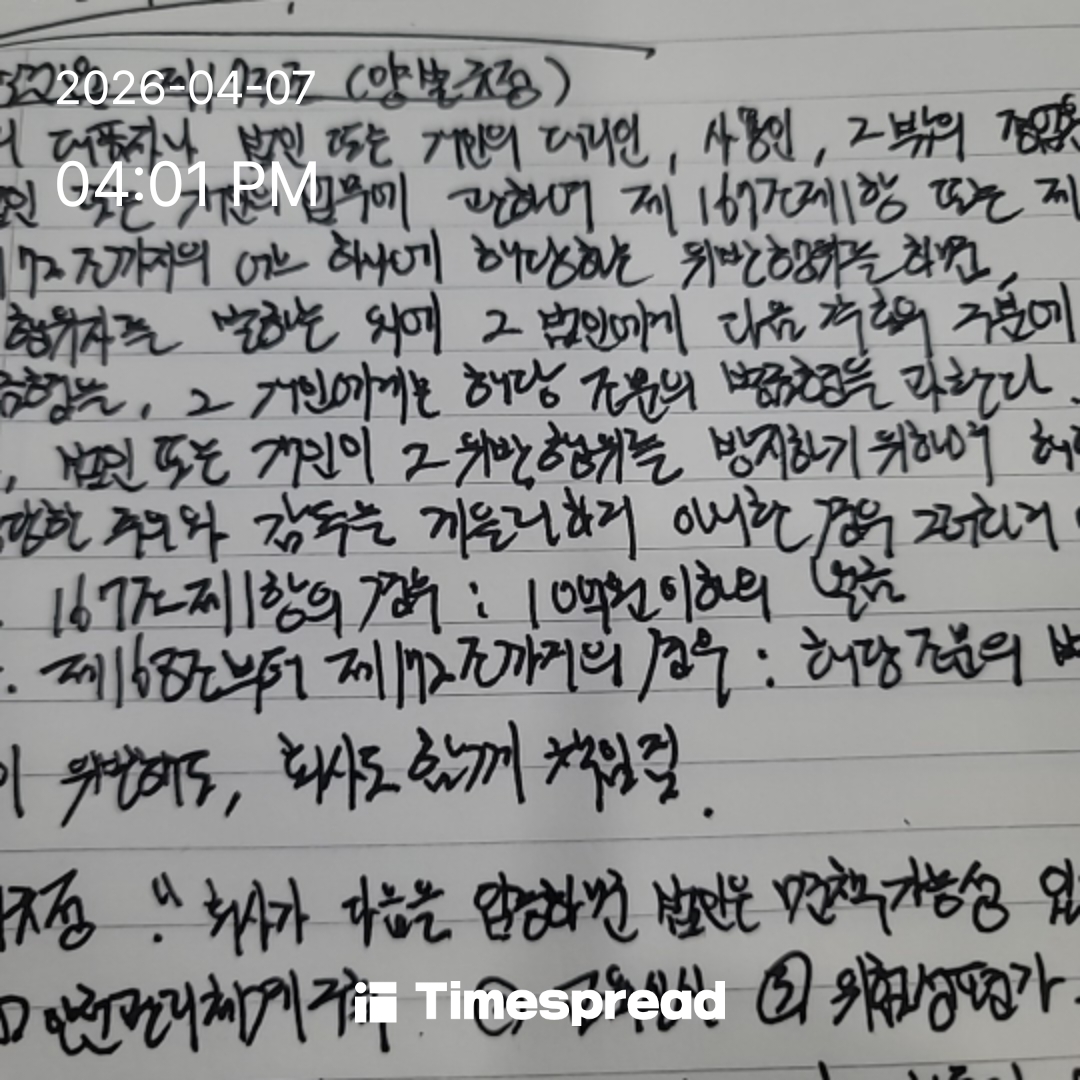 2026-04-07 (양벌규정)
의 대표자나 법인 또는 개인의 대리인, 사용인, 그 밖의
04:01 PM
법인 또는 개인의 업무에 관하여 제167조제1항 또는 제
172조까지의 어느 하나에 해당하는 위반행위를 하면,
행위자를 벌하는 외에 그 법인에게 다음 각호의 구분에
벌금형을, 그 개인에게는 해당 조문의 벌금형을 과한다.
, 법인 또는 개인이 그 위반행위를 방지하기 위하여 해
당한 주의와 감독을 게을리하지 아니한 경우 그러하지
. 167조제1항의 경우 : 10억원 이하의 벌금
. 제168조부터 제172조까지의 경우 : 해당조문의 벌
이 위반해도, 회사도 함께 책임짐.
규정 : 회사가 다음을 입증하면 법인은 면책가능성 있
① 안전관리체계 구축 ② ③ 위험성평가
Timespread